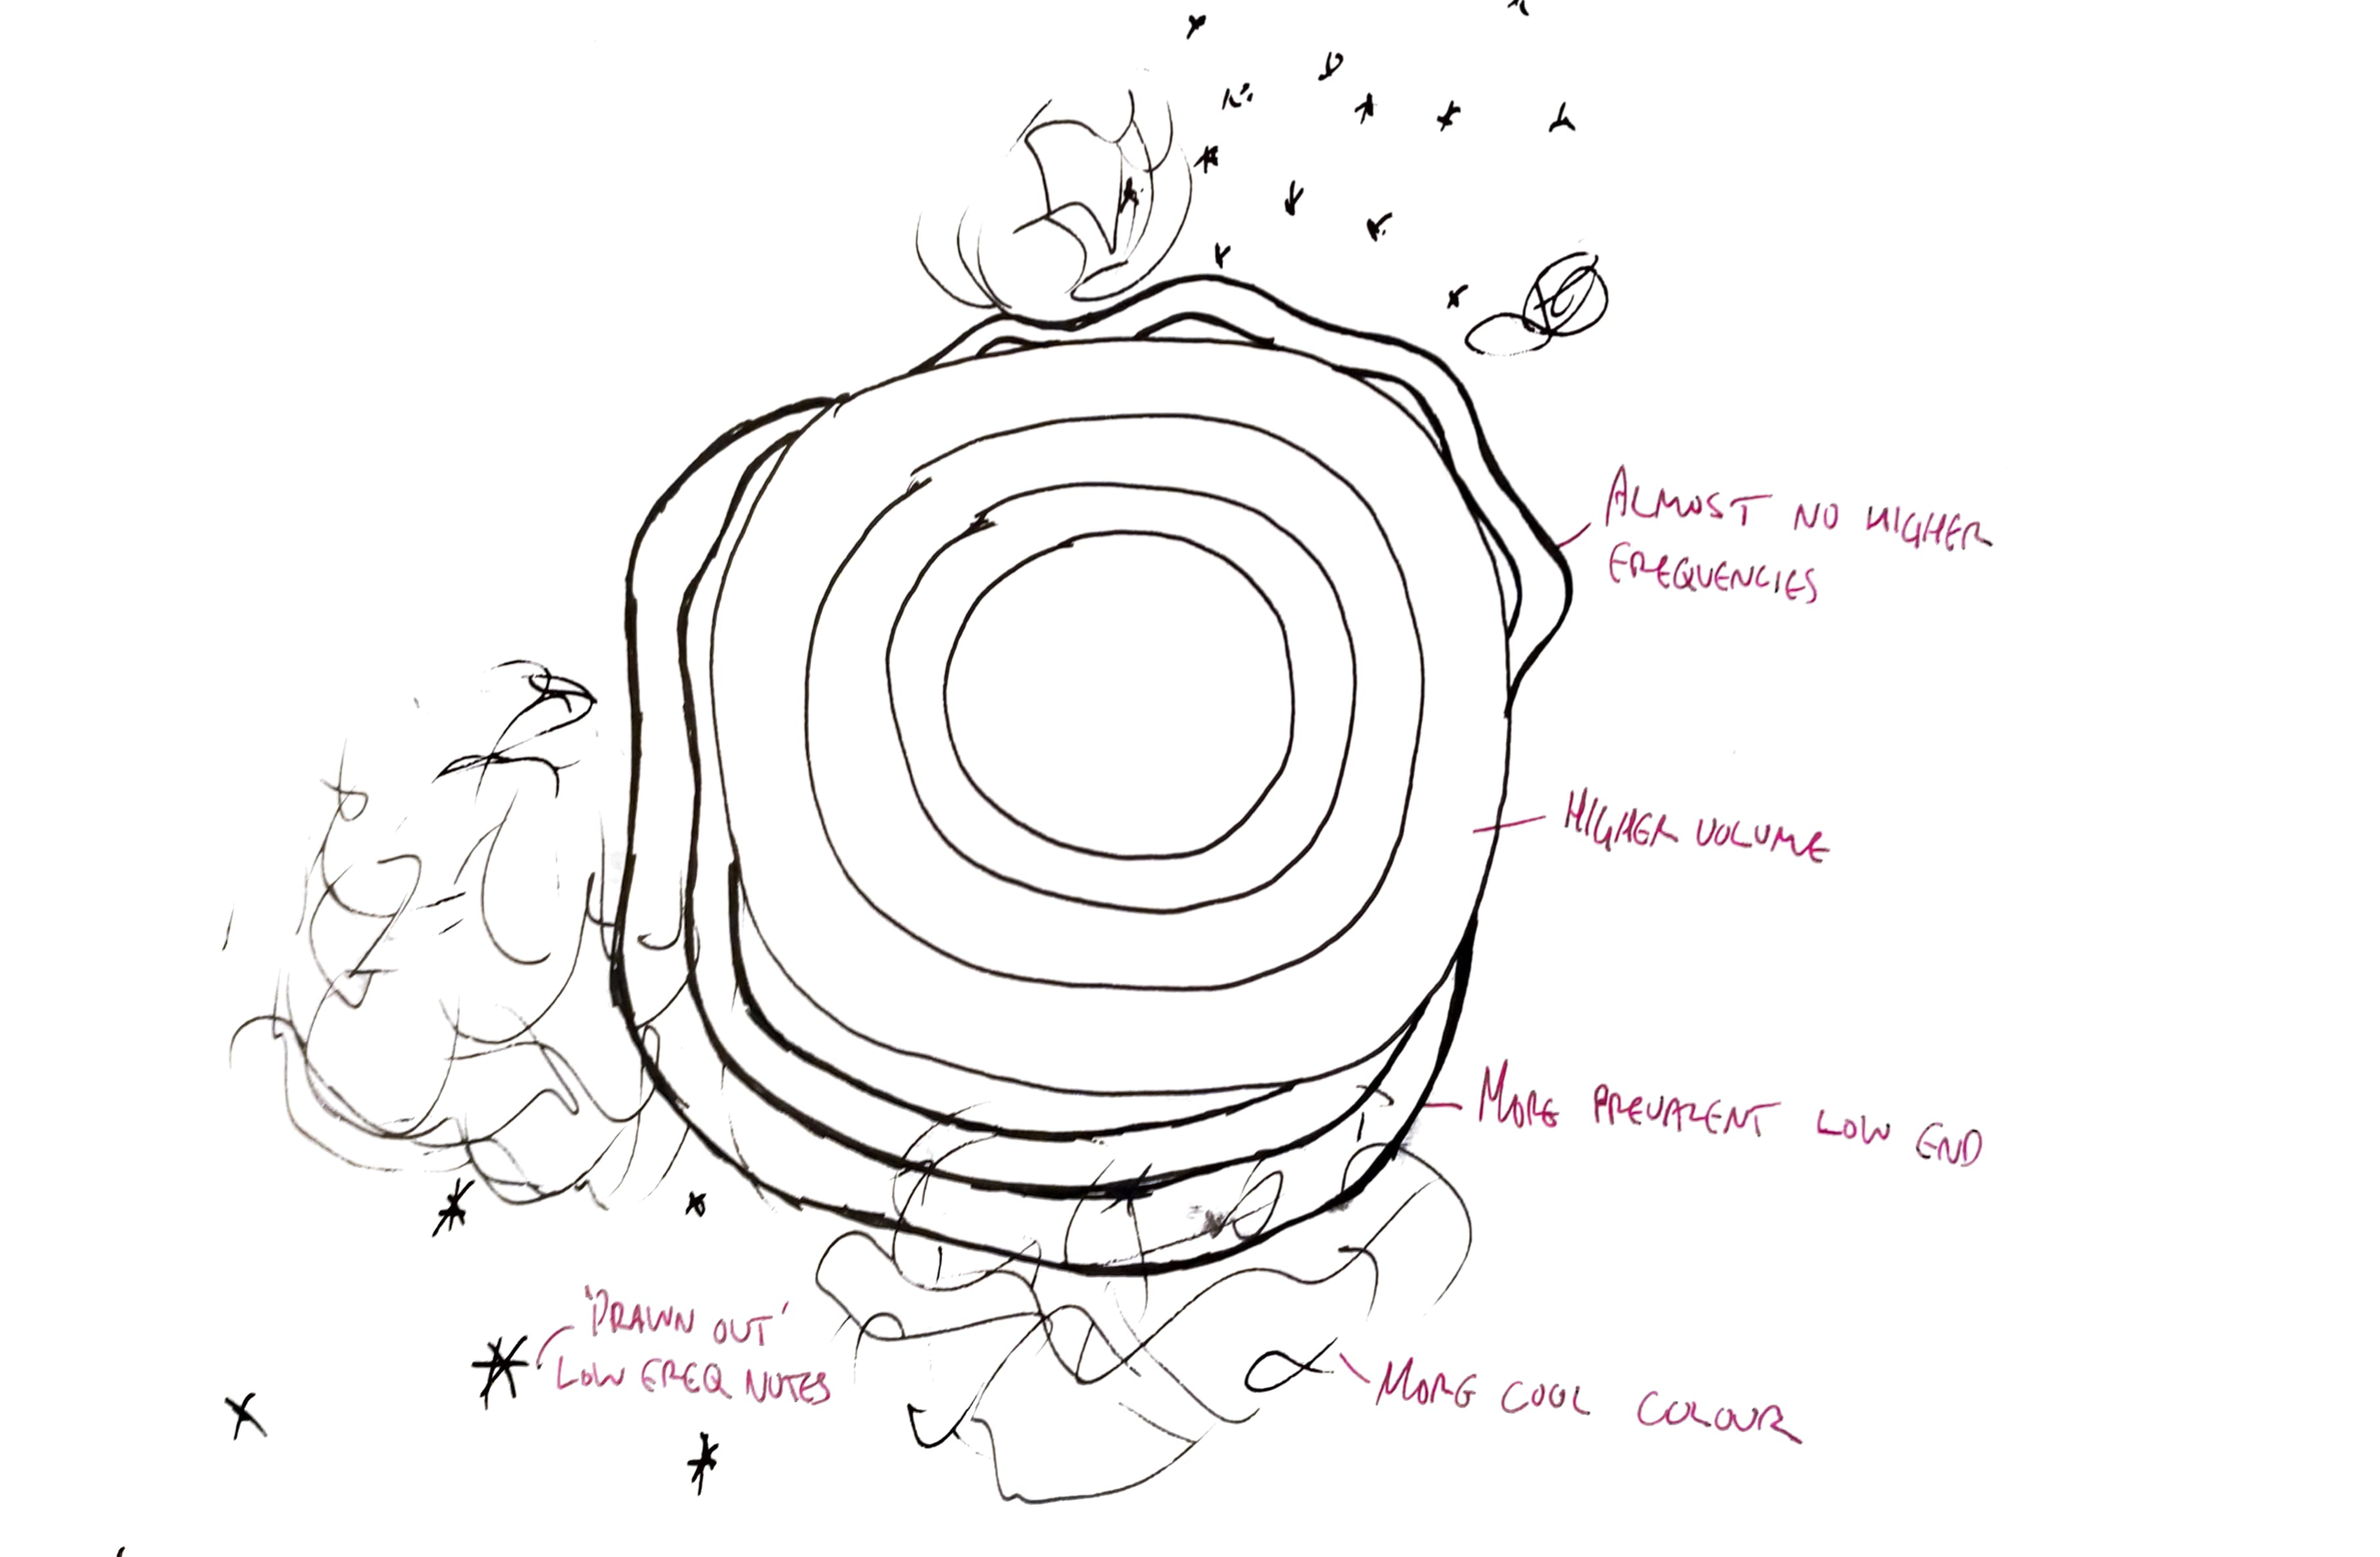 ALMOST NO HIGHER
FREQUENCIES
HIGHER VOLUME
MORE PREVALENT LOW END
'DRAWN OUT'
LOW FREQ NOTES
MORE COOL COLOUR